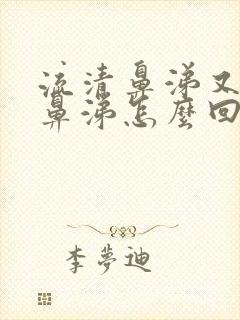 流清鼻涕又
鼻涕怎麼回
李夢迪